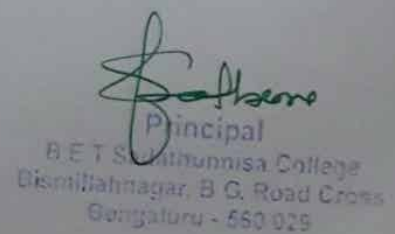 Principal
B E T Sadathunnisa College
Bismillahnagar, B G. Road Cross
Bengaluru - 560 029